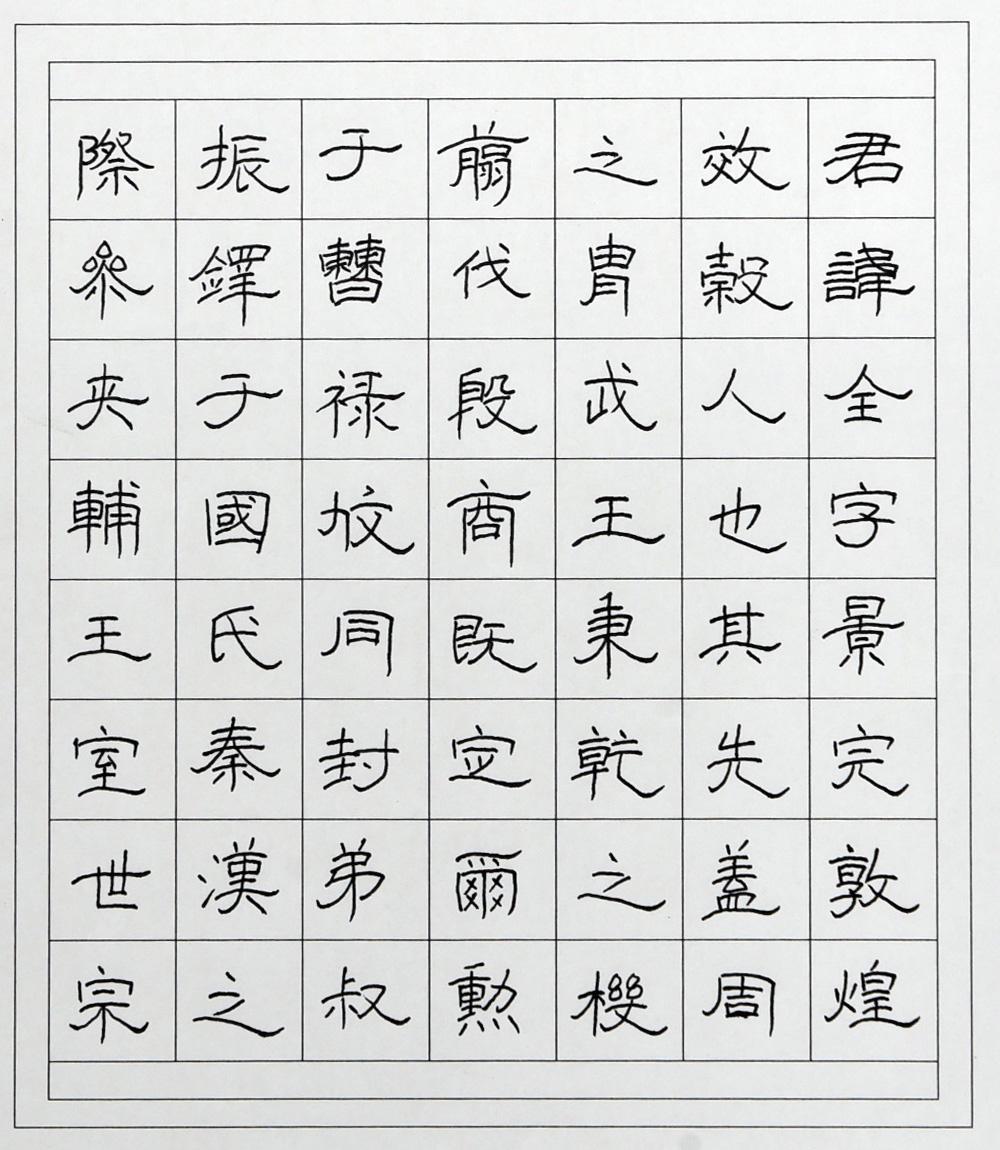 君諱全字景完敦煌
效穀人也其先蓋周
之胄武王秉乾之機
翦伐殷商既定爾勳
于𣍘禄攸同封弟叔
振鐸于國氏秦漢之
際參夹輔王室世宗